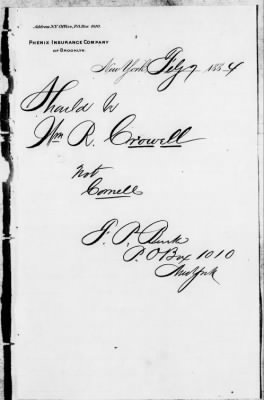 Address N.Y. Office, P.O. Box 1010.
PHENIX INSURANCE COMPANY
OF BROOKLYN.
New York Feby 7 1884
Should be
Wm R. Crowell
not
Cornell
P.O Box 1010
New York